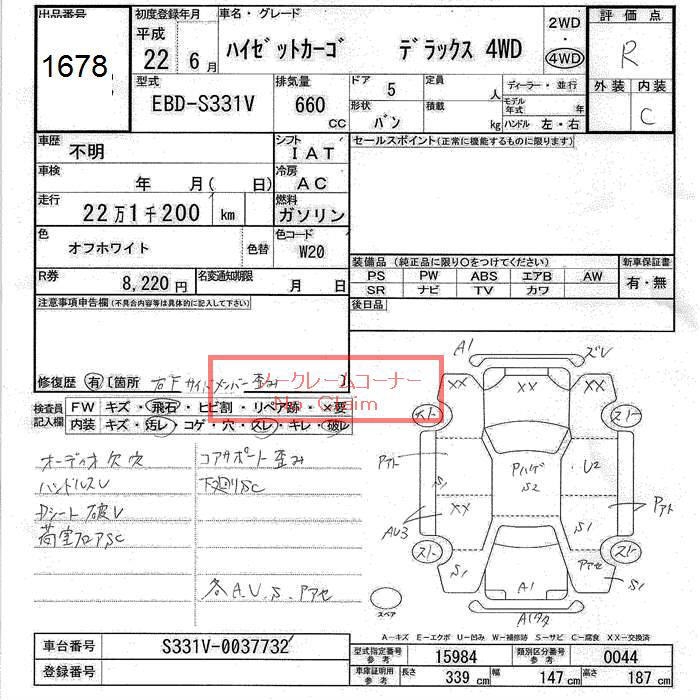 出品番号 初度登録年月 車名・グレード 2WD 評価点
1678 平成 ハイゼットカーゴ デラックス 4WD 4WD R
22年 6月
型式 排気量 ドア 5 定員 人 ディーラー・並行 外装 内装
EBD-S331V 660 CC 形状 バン 積載 kg モデル年式 年 C
ハンドル 左・右
車歴 不明 シフト IAT セールスポイント(正常に機能するものに限ります)
車検 年 月( 日) 冷房 AC
走行 22万1千200 km 燃料 ガソリン
色 オフホワイト 色替 色コード W20
装備品 (純正品に限り○をつけてください) 新車保証書
R券 8,220円 名変通知期限 月 日 PS PW ABS エアB AW 有・無
SR ナビ TV カワ
注意事項申告欄(不具合内容等は具体的に記入して下さい) 後日品
修復歴 有 〔箇所 右下サイドメンバー歪み 〕
ノークレームコーナー
No Claim
検査員記入欄 FW キズ・飛石・ヒビ割・リペア跡・×要
内装 キズ・汚レ・コゲ・穴・スレ・キレ・破レ
オーディオ欠 穴 コアサポート歪み
ハンドルスレ 下廻りSC
Dシート破レ
荷室フロアSC
各A.U.S.アアセ
A1 ズレ
XX XX XX
スト スト
アト Pハゲ S2 U2
S1 XX S1 Pアト
AU3
スト スト
S1 A1 Pアセ S1
スペア A1ワク
A－キズ E－エクボ U－凹み W－補修跡 S－サビ C－腐食 XX－交換済
車台番号 S331V-0037732 型式指定番号 参考 15984 類別区分番号 参考 0044
登録番号 車庫証明用 参考 長さ 339 cm 幅 147 cm 高さ 187 cm